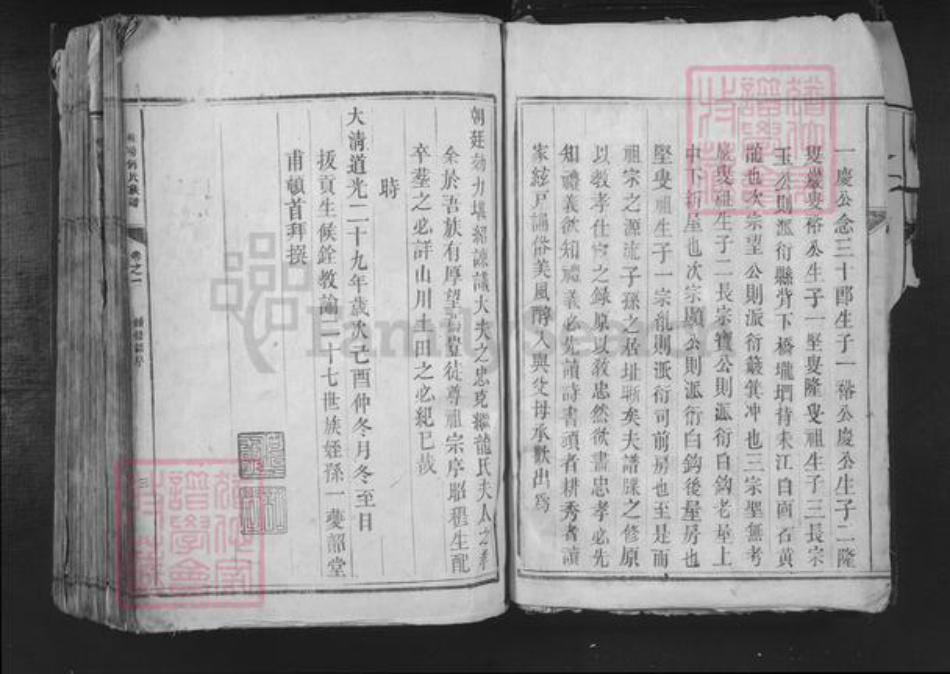 一慶公念三十郎生子一裕公慶公生子二隆
叟巖叟裕公生子一堅叟隆叟祖生子三長宗
玉公則派衍縣背下橋壠坰背未江白面石黃
龍也次宗望公則派衍簸箕冲也三宗聖無考
巖叟祖生子二長宗寶公則派衍白鈎老屋上
中下新屋也次宗顯公則派衍白鈎後屋房也
堅叟祖生子一宗亂則派衍司前房也至是而
祖宗之源流子孫之居址晰矣夫譜牒之修原
以教孝仕宦之錄原以教忠然欲盡忠孝必先
知禮義欲知禮義必先讀詩書頑者耕秀者讀
家絃戶誦俗美風醇入與父母承歡出爲
朝廷効力堪紹諫議大夫之忠克繼龍氏夫人之孝
余於吾族有厚望焉豈徒尊祖宗序昭穆生配
卒塟之必詳山川土田之必紀已哉
時
大清道光二十九年歲次己酉仲冬月冬至日
拔貢生候銓教諭二十七世族姪孫一夔韶堂
甫頓首拜撰
氏族譜
卷之一
三
FamilySearch